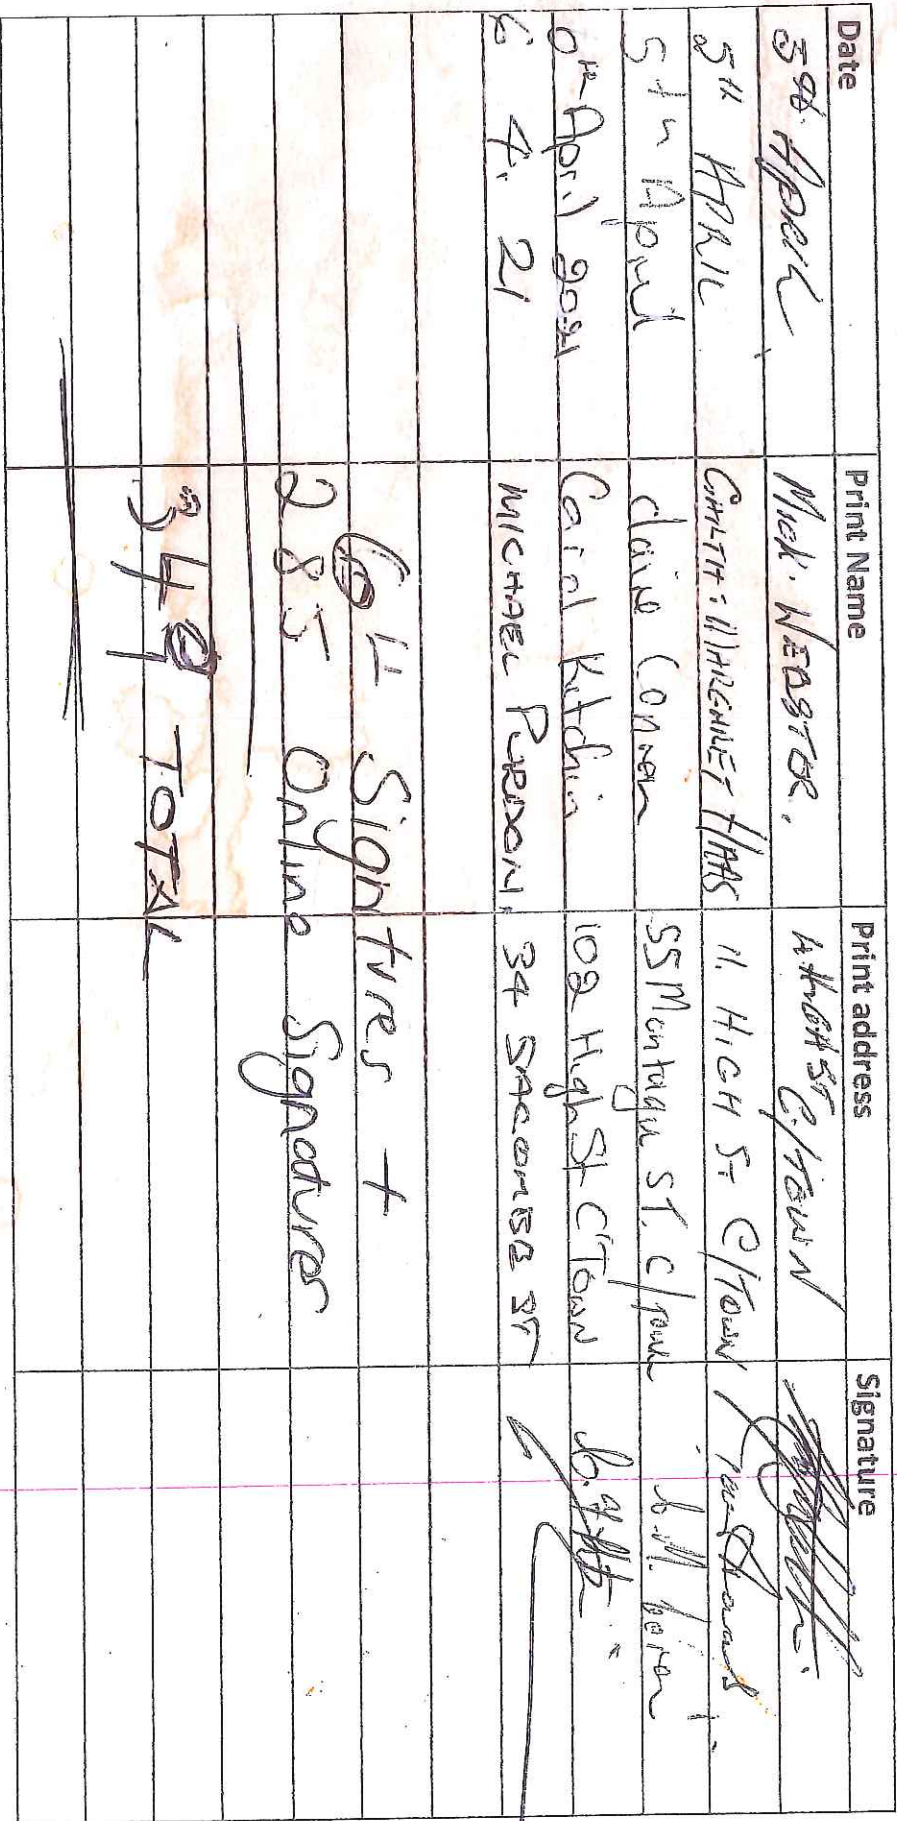 Date Print Name Print address Signature
5th April Mick. WEBSTER. HIGH ST C/TOWN
5th APRIL HAAS 11. HIGH ST C/TOWN
5th April claire Conron 55 Montagu ST, C/town
6th April 2021 Carol Kitchin 102 High St C'Town
6 4. 21 MICHAEL PURDON. 34 ST
64 Signtures +
285 Online Signatures
349 TOTAL